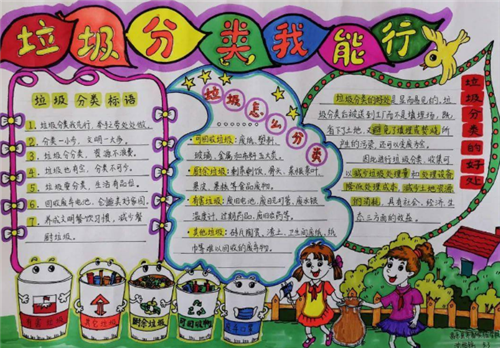 垃圾分类我能行
垃圾分类标语
1、垃圾分类我先行，举手带处处做。
2、分类一小步，文明一大步。
3、垃圾分类，资源不浪费。
4、垃圾也有家，分类不可少。
5、垃圾要分类，生活有品位。
6、回收废弃电池，会画美好家园。
7、养成文明餐饮习惯，减少餐
厨垃圾。
垃圾怎么分类
可回收垃圾：废纸、塑料、
玻璃、金属和布料五大类。
厨余垃圾：剩菜剩饭、骨头、菜根菜叶、
果皮、果核等食品废物。
有害垃圾：废旧电池、废日光灯管、废水银
温度计、过期药品、废旧家电等。
其他垃圾：砖瓦陶瓷、渣土、卫生间废纸、纸
巾等难以回收的废弃物。
垃圾分类的好处
垃圾分类的好处是显而易见的，垃
圾分类后被送到工厂而不是填埋场，既
省下土地，又避免了填埋或焚烧所
产生的污染，还可以变废为宝。
因此进行垃圾分类，收集可
以减少垃圾处理量和处理设备
降低处理成本，减少土地资源
的消耗，具有社会、经济、生
态三方面的效益。
厨余垃圾
可回收物